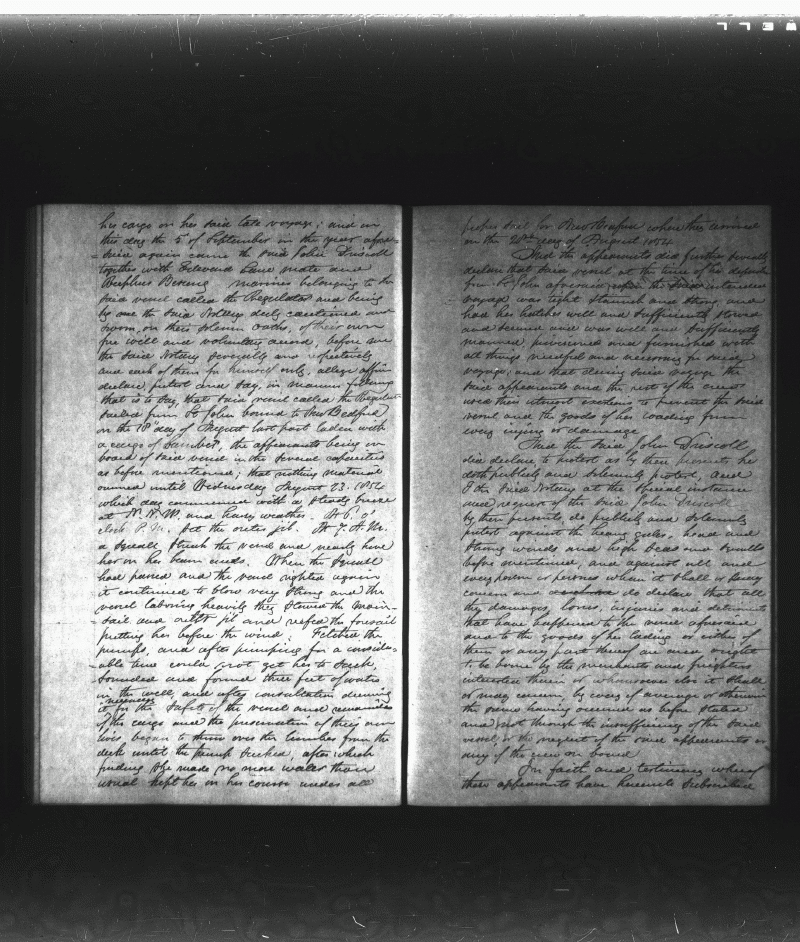 his cargo on her said late voyage; and on
this day the 5 of September in the year afore=
=said again came the said John Driscoll
together with Edward Lane mate and
mariners belonging to the
said vessel called the Regulator and being
by me the said Notary duly cautioned and
sworn, on their solemn oaths, of their own
free will and voluntary accord, before me
the said Notary severally and respectively
and each of them for himself only, allege affirm
declare, protest and say, in manner following
that is to say, that said vessel called the Regulator
sailed from St John bound to New Bedford
on the 18th day of August last past laden with
a cargo of Lumber, the appearants being on
board of said vessel in the several capacities
as before mentioned; that nothing material
occurred until Wednesday August 23. 1854
which day commenced with a steady breeze
at N.N.W. and hazy weather. At 6. o'
clock P.M. set the outer jib. At 7. A.M.
a Squall struck the vessel and nearly hove
her on her beam ends. When the Squall
had passed and the vessel righted again
it continued to blow very strong and the
vessel laboring heavily they stowed the main-
-sail and outer jib and reefed the foresail
putting her before the wind. the
pumps, and after pumping for a consider-
-able time could not get her to suck,
Sounded and found three feet of water
in the well, and after consultation deeming
it necessary for the safety of the vessel and remainder
of the cargo and the preservation of their own
lives began to throw over the lumber from the
deck until the pump sucked, after which
finding she made no more water than
usual kept her on her course under all
sail for New Bedford where they arrived
on the 28th day of August 1854
And the appearants did further severally
declare that said vessel at the time of her departure
from St John aforesaid upon the said intended
voyage was tight staunch and strong and
had her hatches well and sufficiently stowed
and secured and was well and sufficiently
manned, provisioned and furnished with
all things needful and necessary for said
voyage; and that during said voyage the
said appearants and the rest of the crew
used their utmost exertions to prevent the said
vessel and the goods of her loading from
every injury or damage
And the said John Driscoll
did declare to protest as by these presents he
doth publicly and solemnly protest, and
I the said Notary at the special instance
and request of the said John Driscoll
by these presents do publicly and solemnly
protest against the heavy gales. head and
strong winds and high seas and squalls
before mentioned, and against all and
every person or persons whom it shall or may
concern and do declare that all
the damages, losses, injuries and detriments
that have happened to the vessel aforesaid
and to the goods of her lading or either of
them or any part thereof are and ought
to be borne by the merchants and freighters
interested therein or whomsoever else it shall
or may concern, by way of average or otherwise
the same having occurred as before stated
and not through the insufficiency of the said
vessel, or the neglect of the said appearants or
any of the crew on board.
In faith and testimony whereof
these appearants have hereunto subscribed